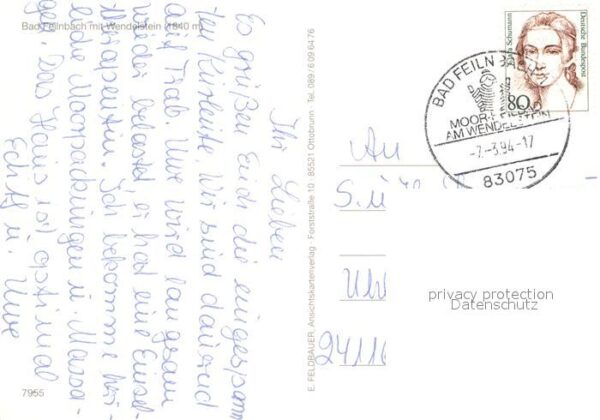 Bad Feilnbach mit Wendelstein (1840 m)
Ihr Lieben
Es grüßen Euch die eingespann
ten Kurleute. Wir sind dauernd
auf Trab. Uwe wird langsam
wieder belastet er hat eine Einzel-
therapeutin. Ich bekomme
beide Moorpackungen u. Massa-
gen. Das Haus ist optimal
u. Uwe
7955
E. FELDBAUER, Ansichtskartenverlag Forststraße 10 · 85521 Ottobrunn Tel. 089 / 6 09 64 76
Clara Schumann
Deutsche Bundespost
80
BAD FEILNBACH
MOOR-
AM WENDELSTEIN
-7.-3.94-17
83075
An
S.
24116
privacy protection
Datenschutz